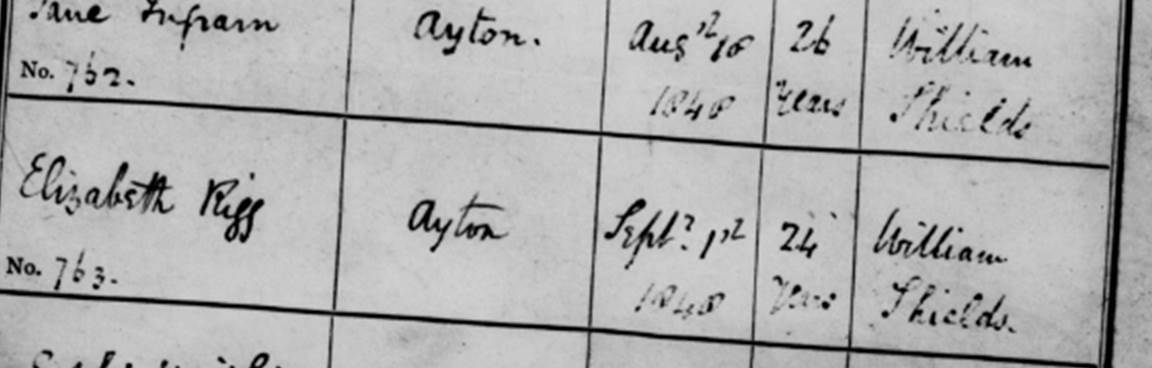 Jane Ingram Ayton. Augst 18 26 William
No. 762. 1848 Years Shields
Elizabeth Rigg Ayton Sept. 1st 24 William
No. 763. 1848 Years Shields.